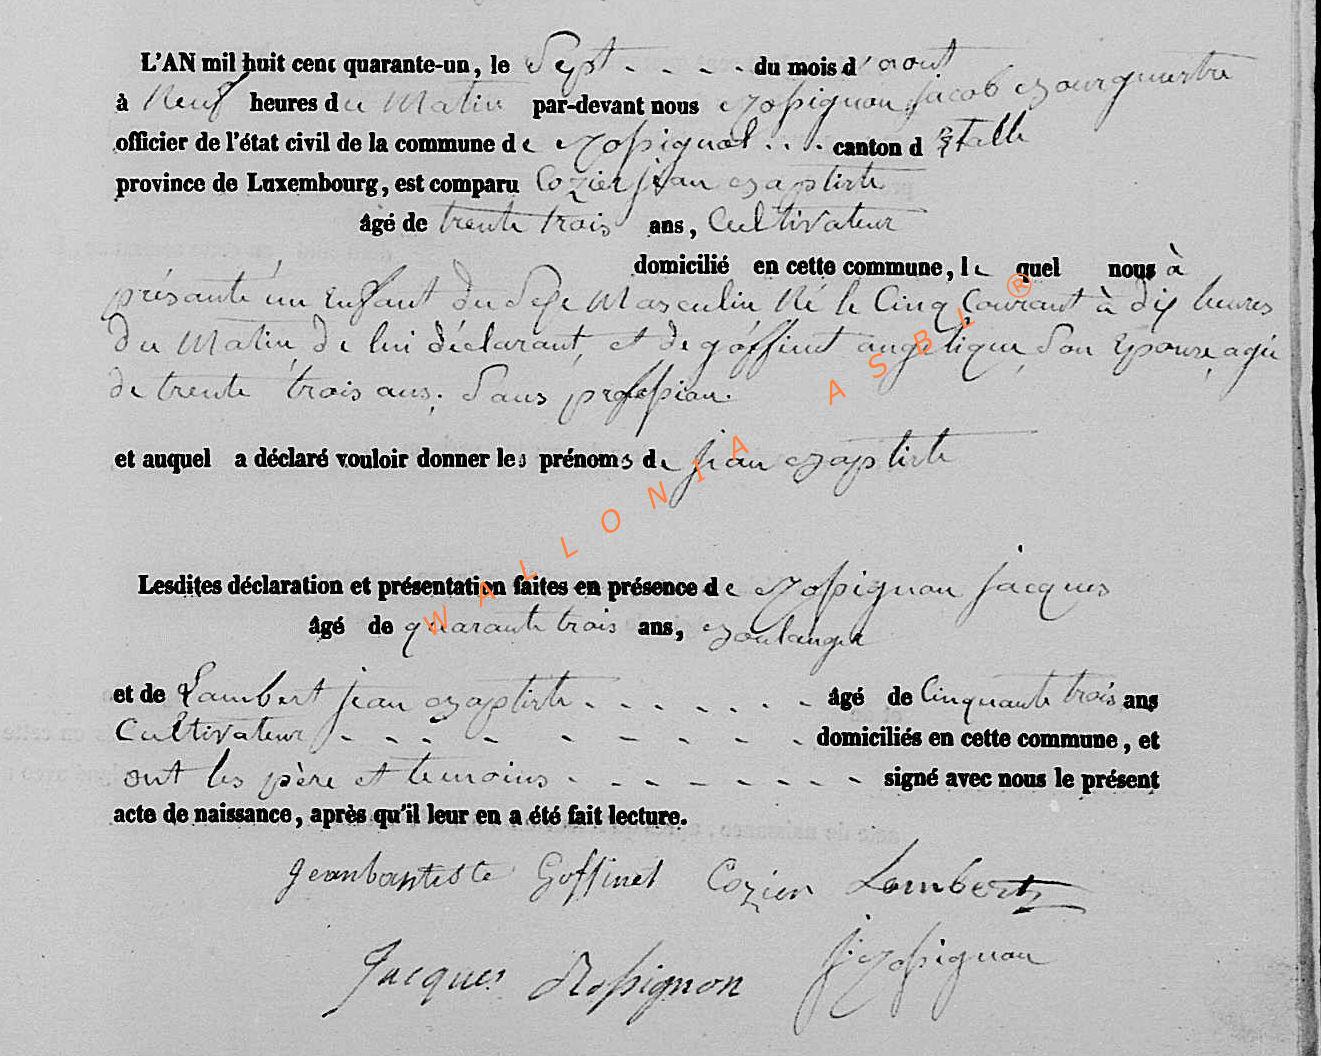 L'AN mil huit cent quarante-un, le Sept - - - - du mois d'aout
à Neuf heures du Matin par-devant nous Rossignon Jacob Bourguestre
officier de l'état civil de la commune de Rossignol . . . canton d'Etalle
province de Luxembourg, est comparu Cozier jean Baptiste
âgé de trente trois ans, Cultivateur
domicilié en cette commune, le quel nous à
présanté un Enfant du Sexe Masculin Né le Cinq Courant à dix heures
Du Matin, De lui déclarant, et de goffinet angelique, Son Epouse, agée
de trente trois ans, Sans profession.
et auquel a déclaré vouloir donner les prénoms de jean Baptiste
Lesdites déclaration et présentation faites en présence de Rossignon jacques
âgé de quarante trois ans, Boulanger
et de Lambert jean Baptiste - - - - - - - âgé de Cinquante trois ans
Cultivateur - - - - - - - - domiciliés en cette commune, et
ont les père et temoins - - - - - - - - signé avec nous le présent
acte de naissance, après qu'il leur en a été fait lecture.
Jeanbaptiste Goffinet Cozier Lambert
Jacques Rossignon J. Rossignon
WALLONIA ASBL ®